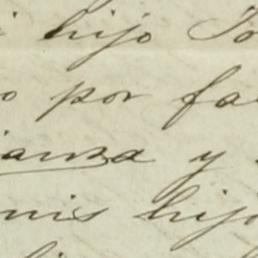 i hijo To
o por fa
ianza y
mis hijo